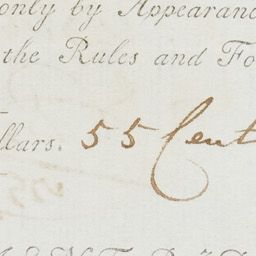 only by Appearanc
the Rules and Fo
llars. 55 Cent